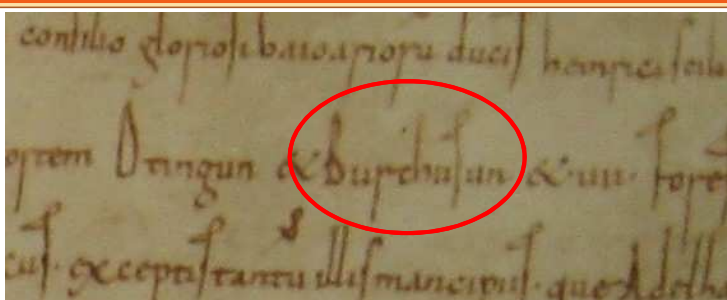 consilio gloriosi baioariorũ ducis heinrici
Otingun & Burchusun &
exceptis tantũ illis mancipiis· que Adelha